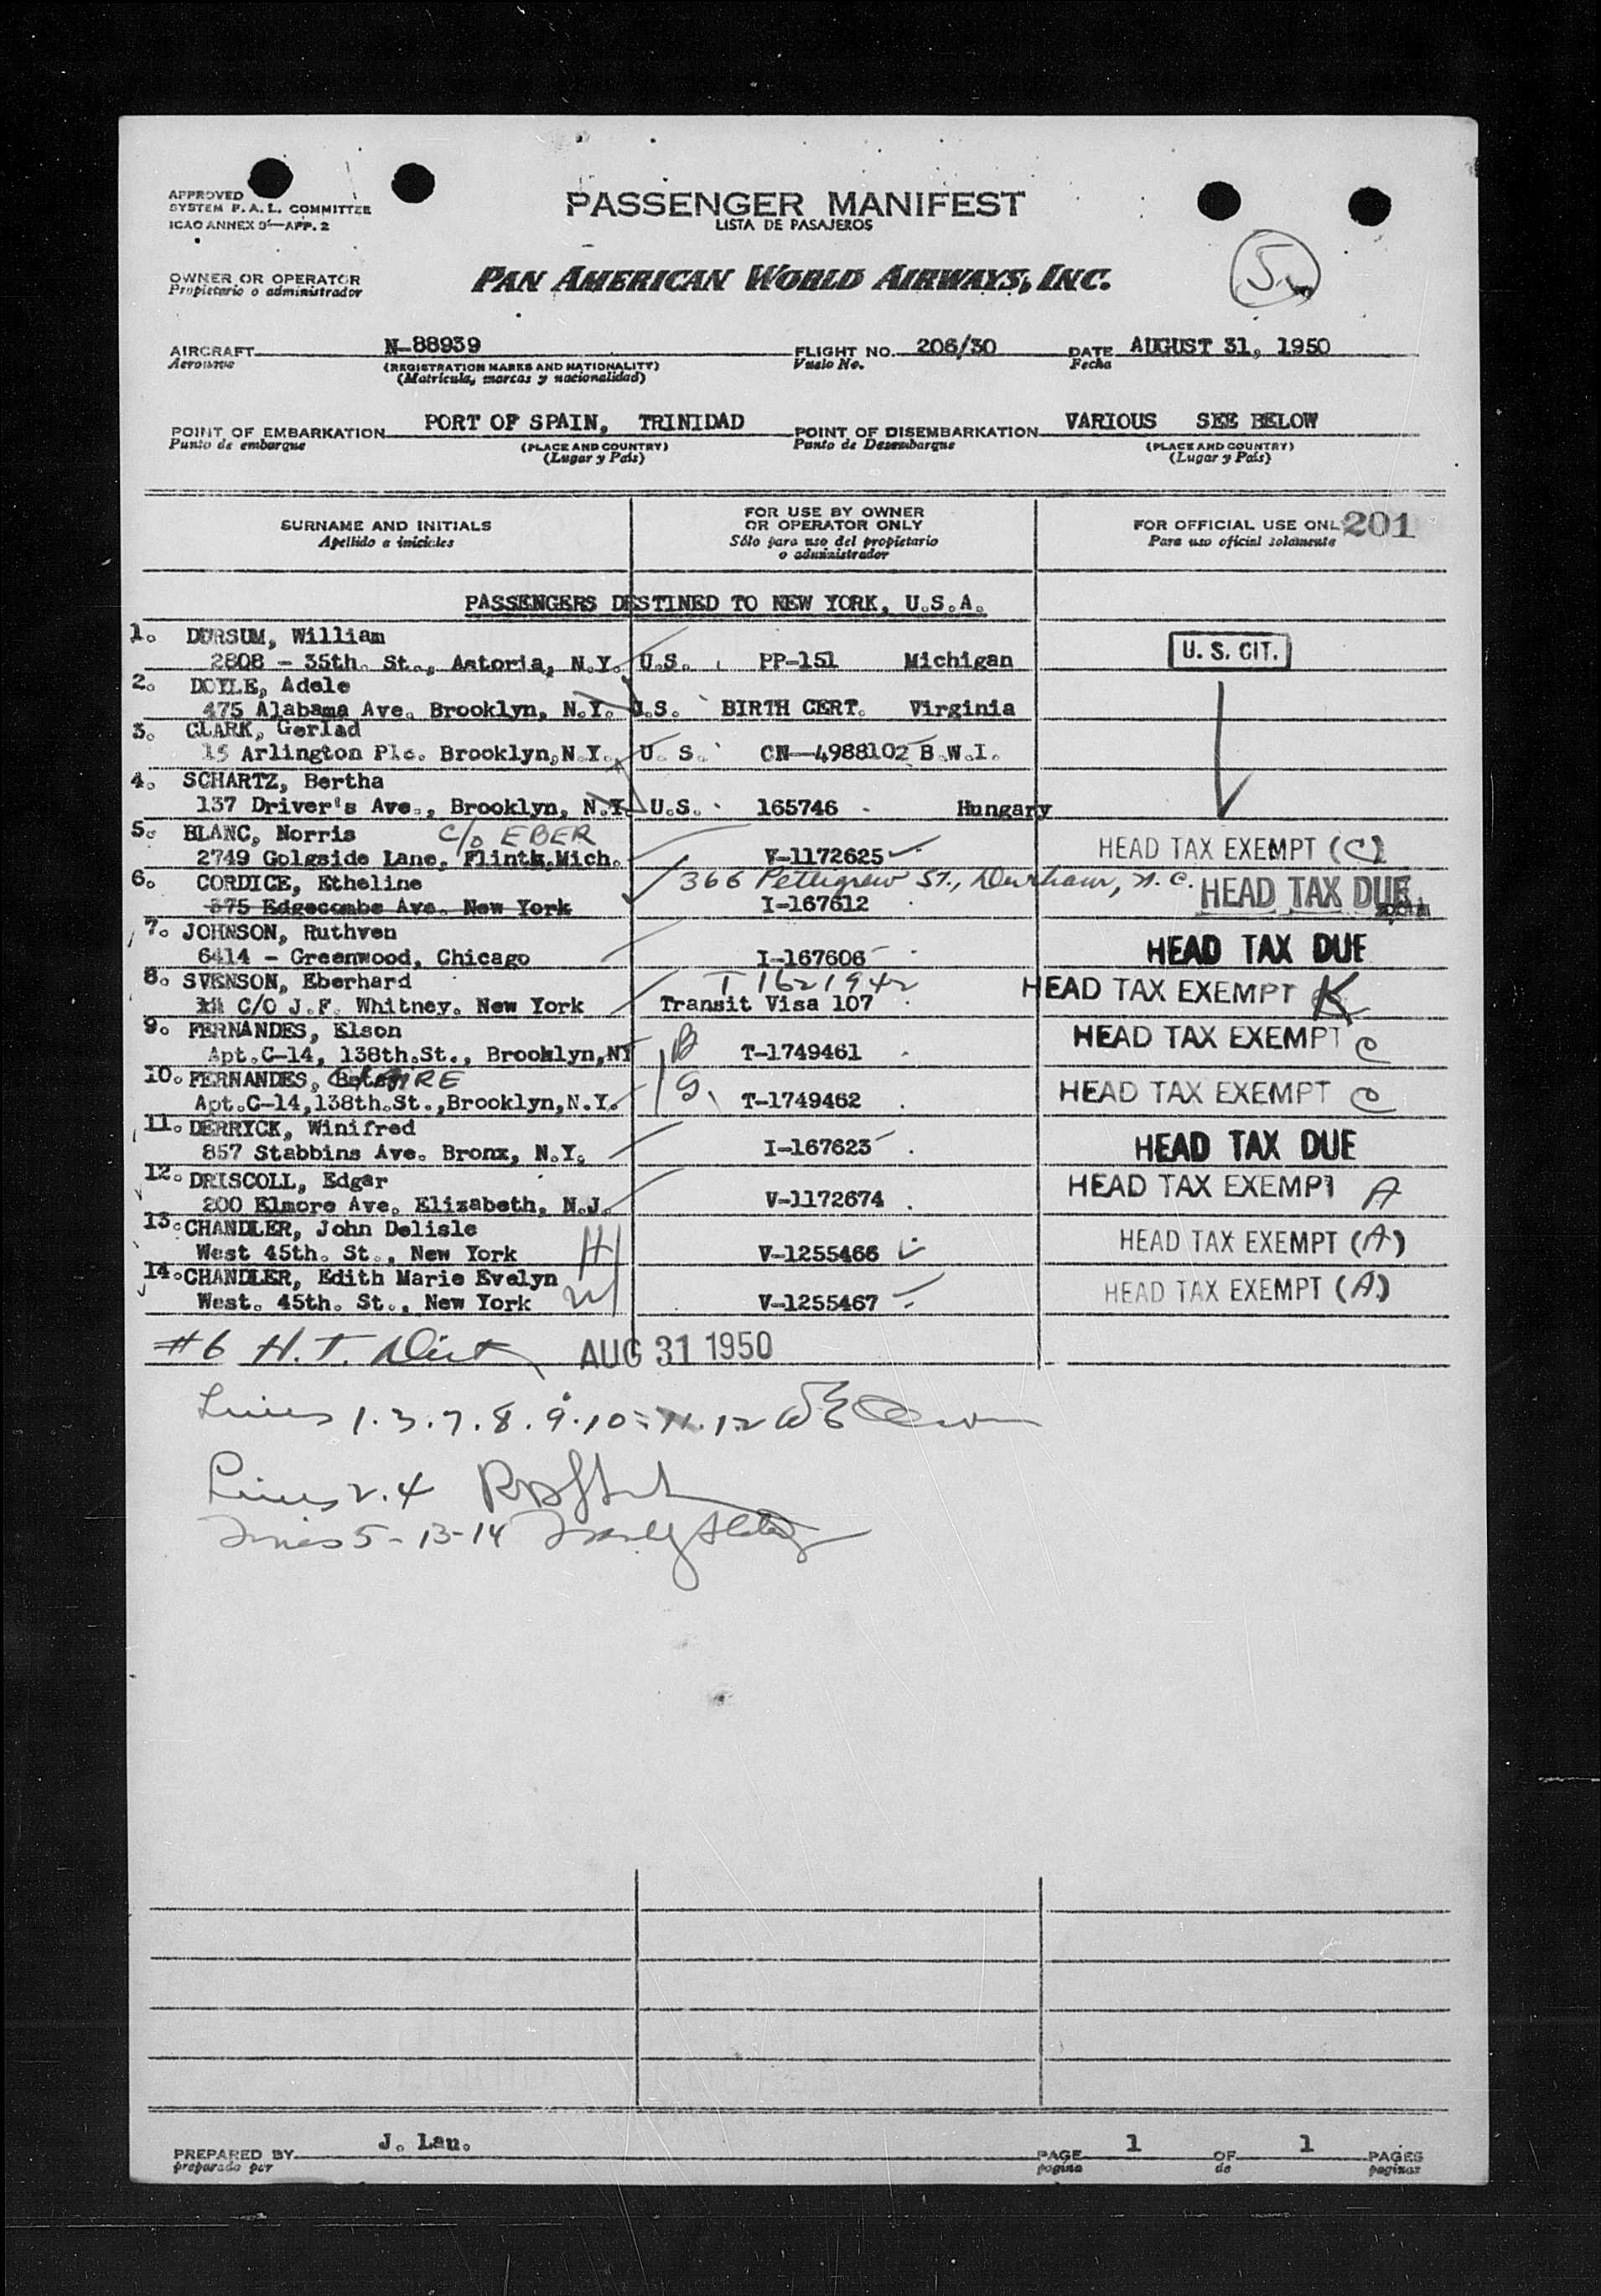 APPROVED
SYSTEM F.A.L. COMMITTEE
ICAO ANNEX 9—APP. 2
PASSENGER MANIFEST
LISTA DE PASAJEROS
5
OWNER OR OPERATOR
Propietario o administrador
PAN AMERICAN WORLD AIRWAYS, INC.
AIRCRAFT N-88939 FLIGHT NO. 206/30 DATE AUGUST 31, 1950
Aeronave (REGISTRATION MARKS AND NATIONALITY) Vuelo No. Fecha
(Matricula, marcas y nacionalidad)
POINT OF EMBARKATION PORT OF SPAIN, TRINIDAD POINT OF DISEMBARKATION VARIOUS SEE BELOW
Punto de embarque (PLACE AND COUNTRY) Punto de Desembarque (PLACE AND COUNTRY)
(Lugar y País) (Lugar y País)
SURNAME AND INITIALS
Apellido e iniciales
FOR USE BY OWNER
OR OPERATOR ONLY
Sólo para uso del propietario
o administrador
FOR OFFICIAL USE ONL 201
Para uso oficial solamente
PASSENGERS DESTINED TO NEW YORK, U.S.A.
1. DURSUM, William
2808 - 35th. St., Astoria, N.Y. U.S. PP-151 Michigan U. S. CIT.
2. DOYLE, Adele
475 Alabama Ave. Brooklyn, N.Y. U.S. BIRTH CERT. Virginia
3. CLARK, Gerlad
15 Arlington Plc. Brooklyn,N.Y. U. S. CN-4988102 B.W.I.
4. SCHARTZ, Bertha
137 Driver's Ave., Brooklyn, N.Y. U.S. 165746 - Hungary
5. BLANC, Norris C/O EBER
2749 Golgside Lane, Flinth,Mich. V-1172625 HEAD TAX EXEMPT (C)
6. CORDICE, Etheline 366 Pettigrew St., Durham, N.C. HEAD TAX DUE
375 Edgecombe Ave. New York I-167612
7. JOHNSON, Ruthven
6414 - Greenwood, Chicago I-167606 HEAD TAX DUE
8. SVENSON, Eberhard T 1621942
C/O J.F. Whitney. New York Transit Visa 107 HEAD TAX EXEMPT K
9. FERNANDES, Elson
Apt.C-14, 138th.St., Brooklyn,NY B T-1749461 HEAD TAX EXEMPT C
10. FERNANDES, CLAIRE
Apt.C-14,138th.St.,Brooklyn,N.Y. S. T-1749462 HEAD TAX EXEMPT C
11. DERRYCK, Winifred
857 Stabbins Ave. Bronx, N.Y. I-167623 HEAD TAX DUE
12. DRISCOLL, Edgar
200 Elmore Ave. Elizabeth, N.J. V-1172674 HEAD TAX EXEMPT A
13. CHANDLER, John Delisle
West 45th. St., New York H V-1255466 HEAD TAX EXEMPT (A)
14. CHANDLER, Edith Marie Evelyn
West. 45th. St., New York W V-1255467 HEAD TAX EXEMPT (A)
#6 H.T. AUG 31 1950
Lines 1.3.7.8.9.10.11.12
Lines 2.4
Lines 5-13-14
PREPARED BY J. Lau. PAGE 1 OF 1 PAGES
preparado por pagina de paginas